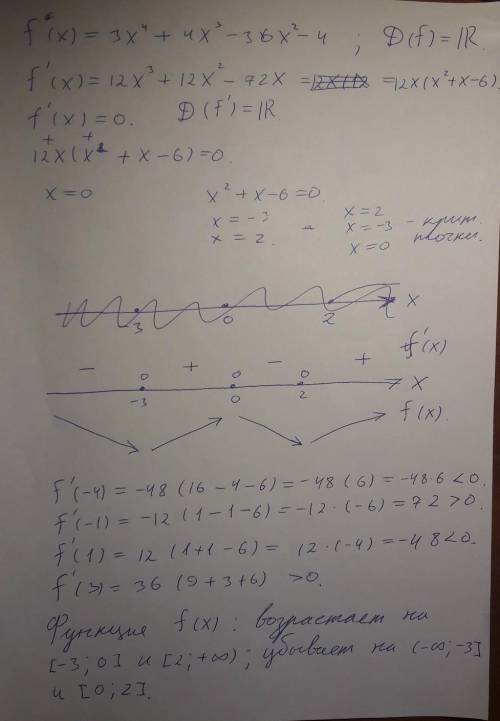 f(x) = 3x⁴ + 4x³ - 36x² - 4 ; D(f) = ℝ.
f'(x) = 12x³ + 12x² - 72x = = 12x(x² + x - 6)
f'(x) = 0. D(f') = ℝ.
12x(x² + x - 6) = 0.
x = 0 x² + x - 6 = 0.
x = -3
x = 2.
x = 2
x = -3
x = 0
- крит. точки.
3 0 2 x
- + - + f'(x)
0 0 0
-3 0 2 x
f(x).
f'(-4) = -48 (16 - 4 - 6) = -48 (6) = -48·6 < 0.
f'(-1) = -12 (1 - 1 - 6) = -12·(-6) = 72 > 0.
f'(1) = 12 (1 + 1 - 6) = 12·(-4) = -48 < 0.
f'(3) = 36 (9 + 3 + 6) > 0.
Функция f(x) : возрастает на
[-3; 0] и [2; +∞) ; убывает на (-∞; -3]
и [0; 2].